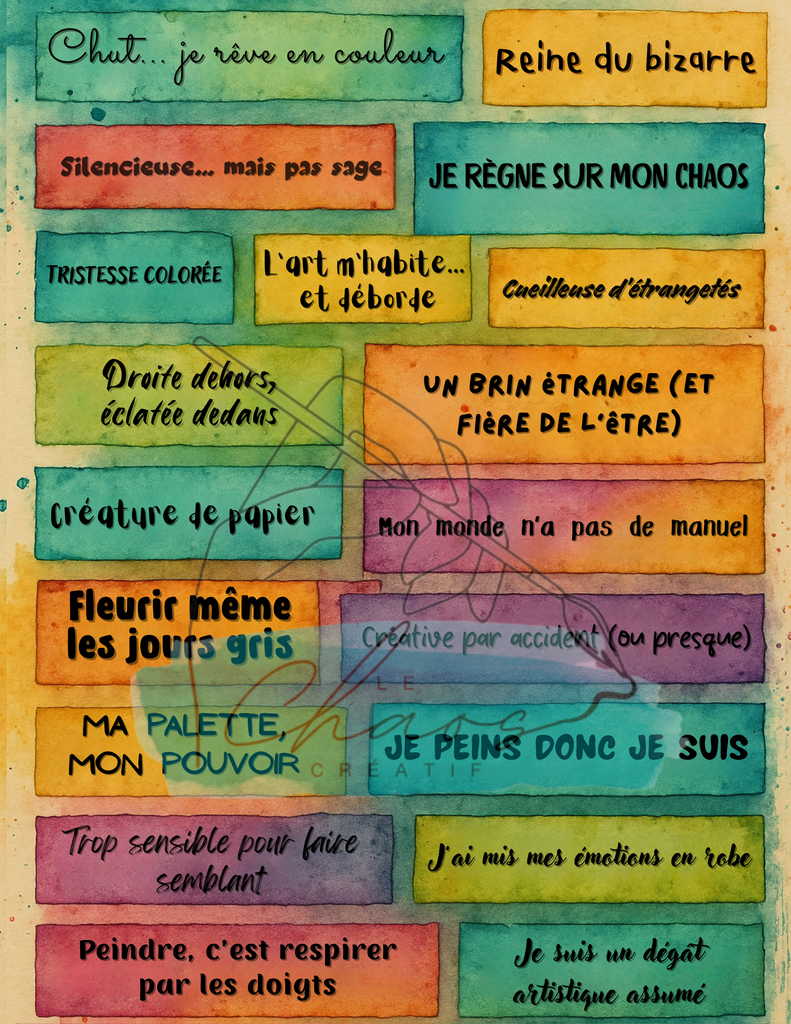 Chut... je rêve en couleur
Reine du bizarre
Silencieuse... mais pas sage
JE RÈGNE SUR MON CHAOS
TRISTESSE COLORÉE
L'art m'habite...
et déborde
Cueilleuse d'étrangetés
Droite dehors,
éclatée dedans
UN BRIN ÉTRANGE (ET
FIÈRE DE L'ÊTRE)
Créature de papier
Mon monde n'a pas de manuel
Fleurir même
les jours gris
Créative par accident (ou presque)
LE
Chaos
CRÉATIF
MA PALETTE,
MON POUVOIR
JE PEINS DONC JE SUIS
Trop sensible pour faire
semblant
J'ai mis mes émotions en robe
Peindre, c'est respirer
par les doigts
Je suis un dégât
artistique assumé